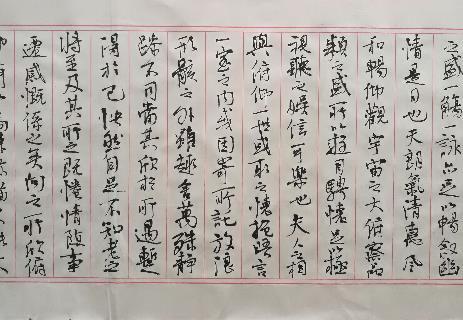 之盛一觴一詠亦足以暢敘幽
情是日也天朗氣清惠風
和暢仰觀宇宙之大俯察品
類之盛所以遊目騁懷足以極
視聽之娛信可樂也夫人之相
與俯仰一世或取之懷抱晤言
一室之內或因寄所託放浪
形骸之外雖趣舍萬殊靜
躁不同當其欣於所遇暫
得於己快然自足不知老之
將至及其所之既惓情隨事
遷感慨係之矣向之所欣俯